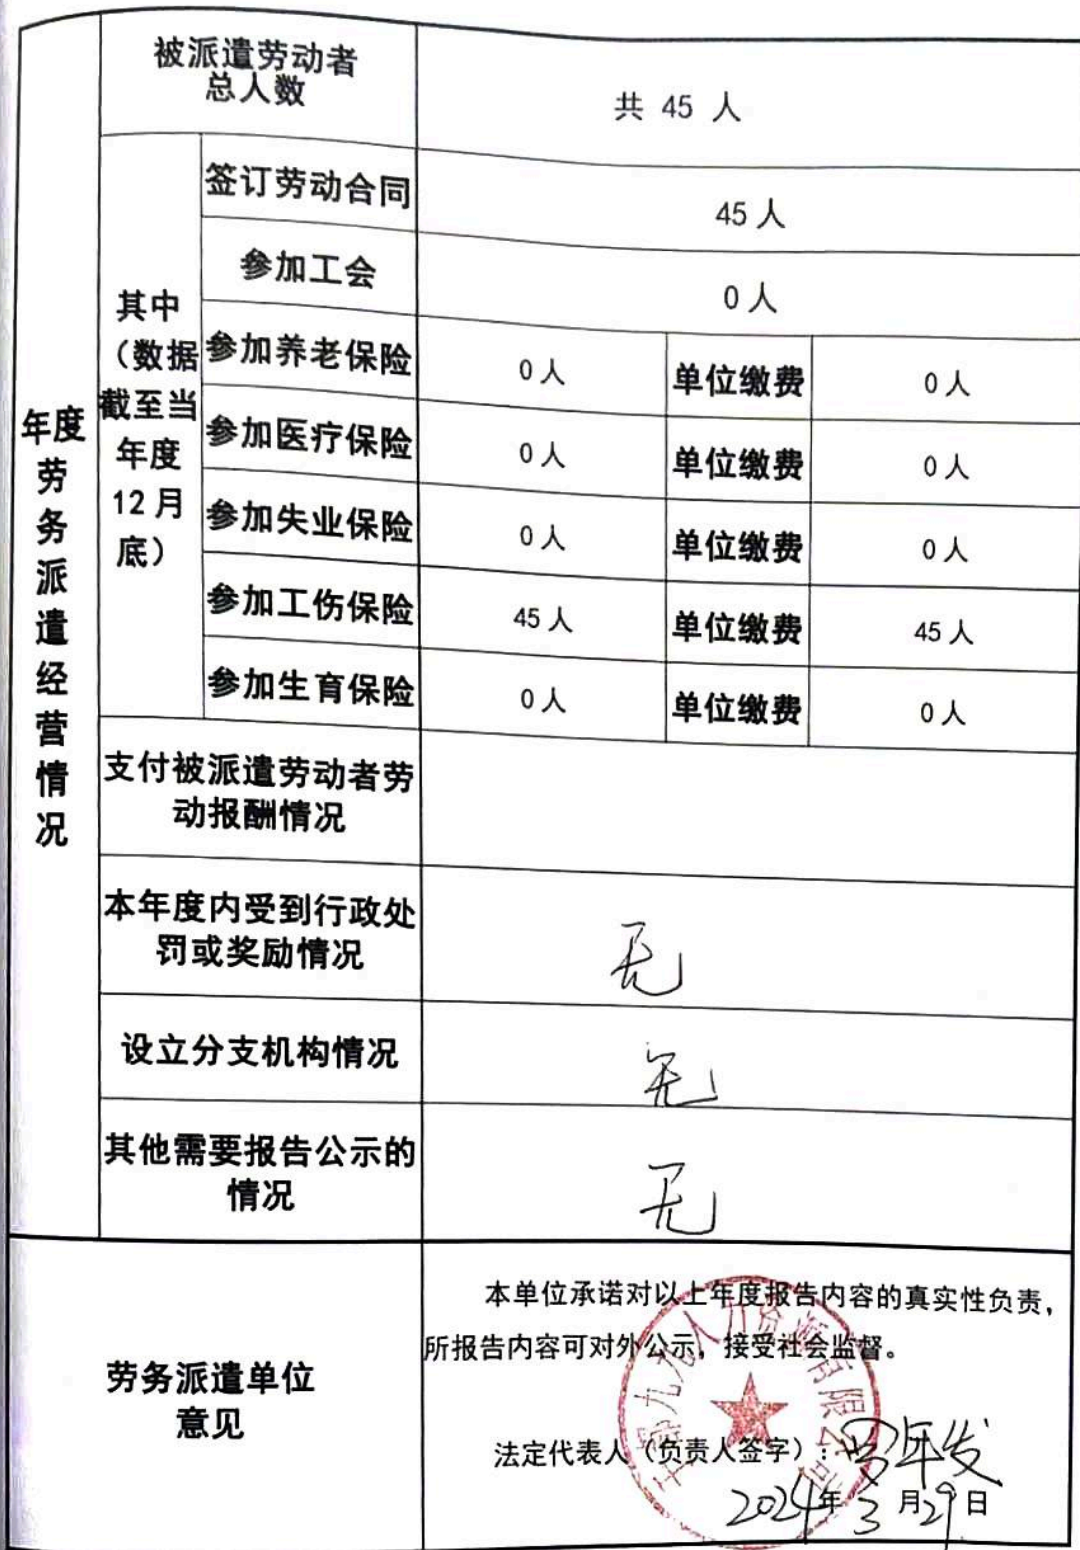 被派遣劳动者
总人数
共 45 人
年度
劳
务
派
遣
经
营
情
况
其中
（数据
截至当
年度
12月
底）
签订劳动合同
45人
参加工会
0人
参加养老保险 0人 单位缴费 0人
参加医疗保险 0人 单位缴费 0人
参加失业保险 0人 单位缴费 0人
参加工伤保险 45人 单位缴费 45人
参加生育保险 0人 单位缴费 0人
支付被派遣劳动者劳
动报酬情况
本年度内受到行政处
罚或奖励情况
无
设立分支机构情况
无
其他需要报告公示的
情况
无
劳务派遣单位
意见
本单位承诺对以上年度报告内容的真实性负责，
所报告内容可对外公示，接受社会监督。
九九人力资源有限公司
法定代表人（负责人签字）：年发
2024年3月29日